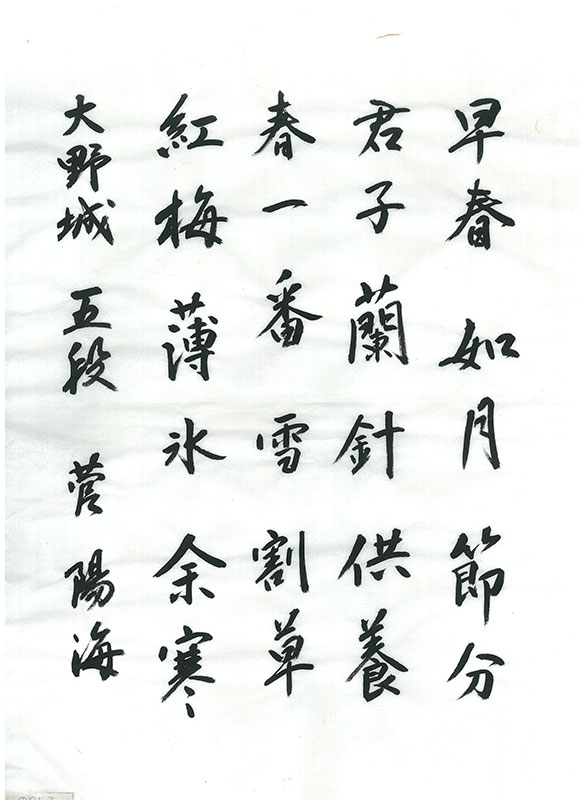 早春 如月 節分
君子蘭 針供養
春一番 雪割草
紅梅 薄氷 余寒
大野城 五段 菅 陽海